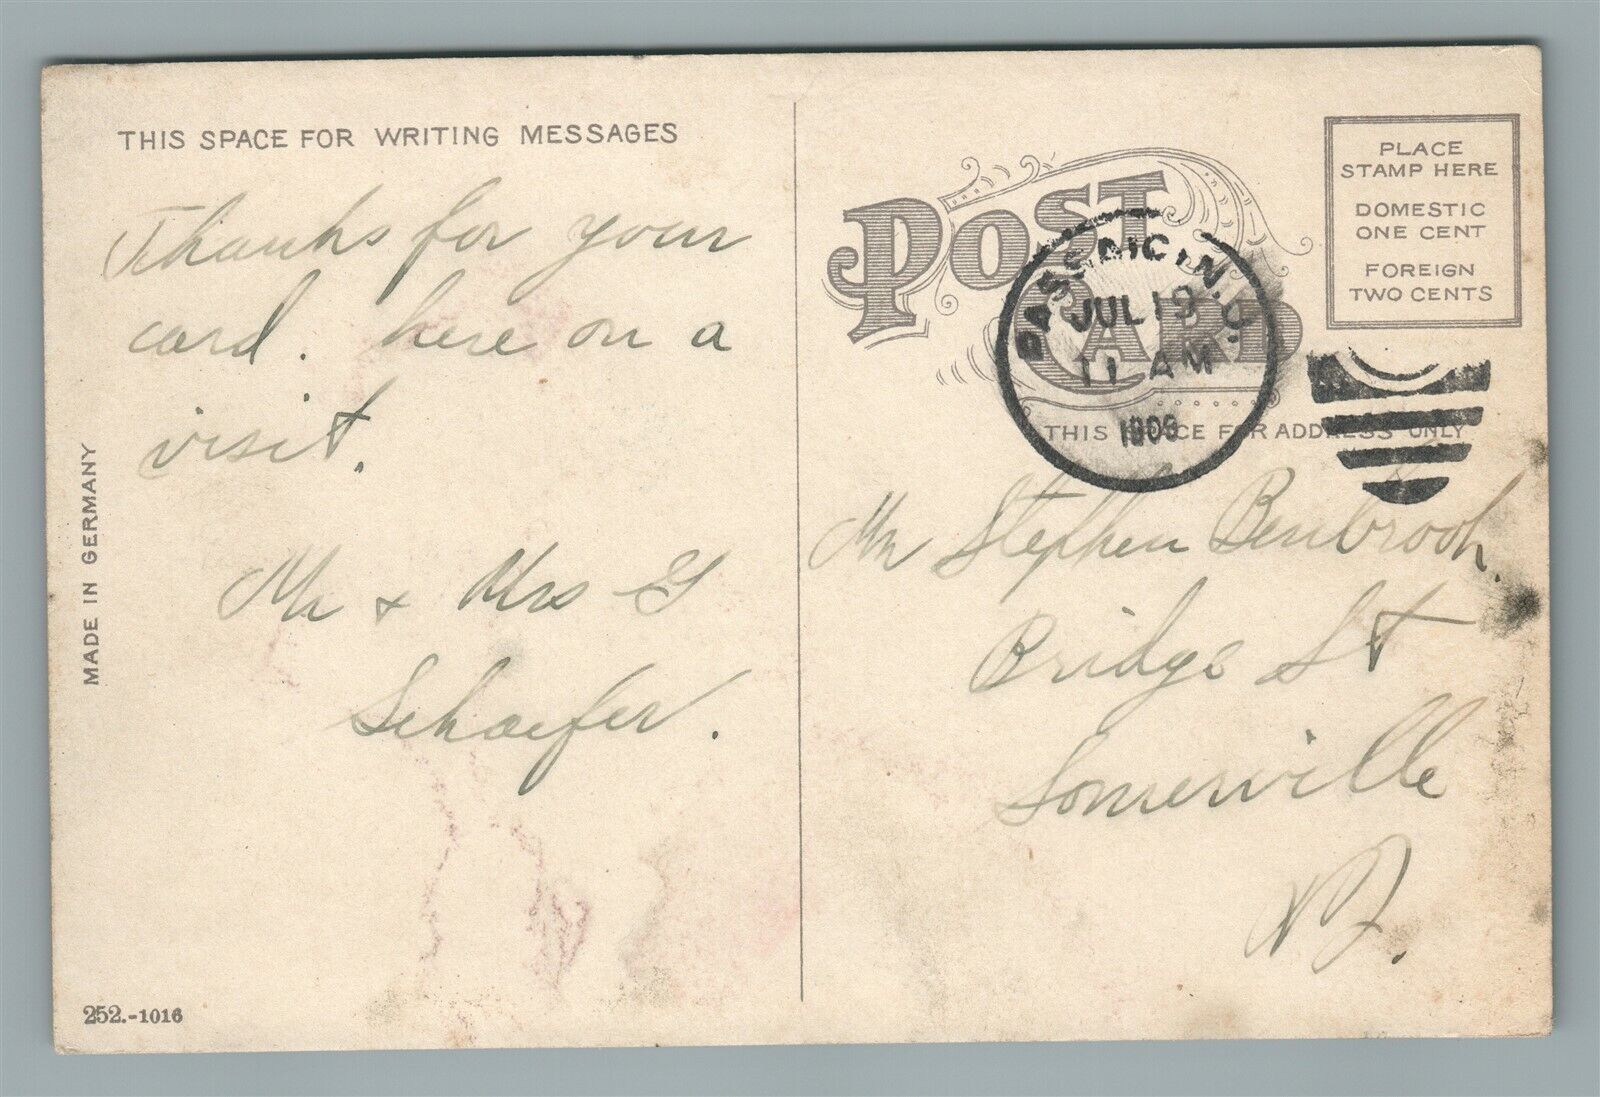 THIS SPACE FOR WRITING MESSAGES
Thanks for your
card. here on a
visit.
Mr & Mrs G
Schaefer.
MADE IN GERMANY
252.-1016
POST
CARD
PLACE
STAMP HERE
DOMESTIC
ONE CENT
FOREIGN
TWO CENTS
PASSAIC, N.J.
JUL 19
11 AM
1909
THIS SPACE FOR ADDRESS ONLY
Mr Stephen Benbrook.
Bridge St
Somerville
NJ.